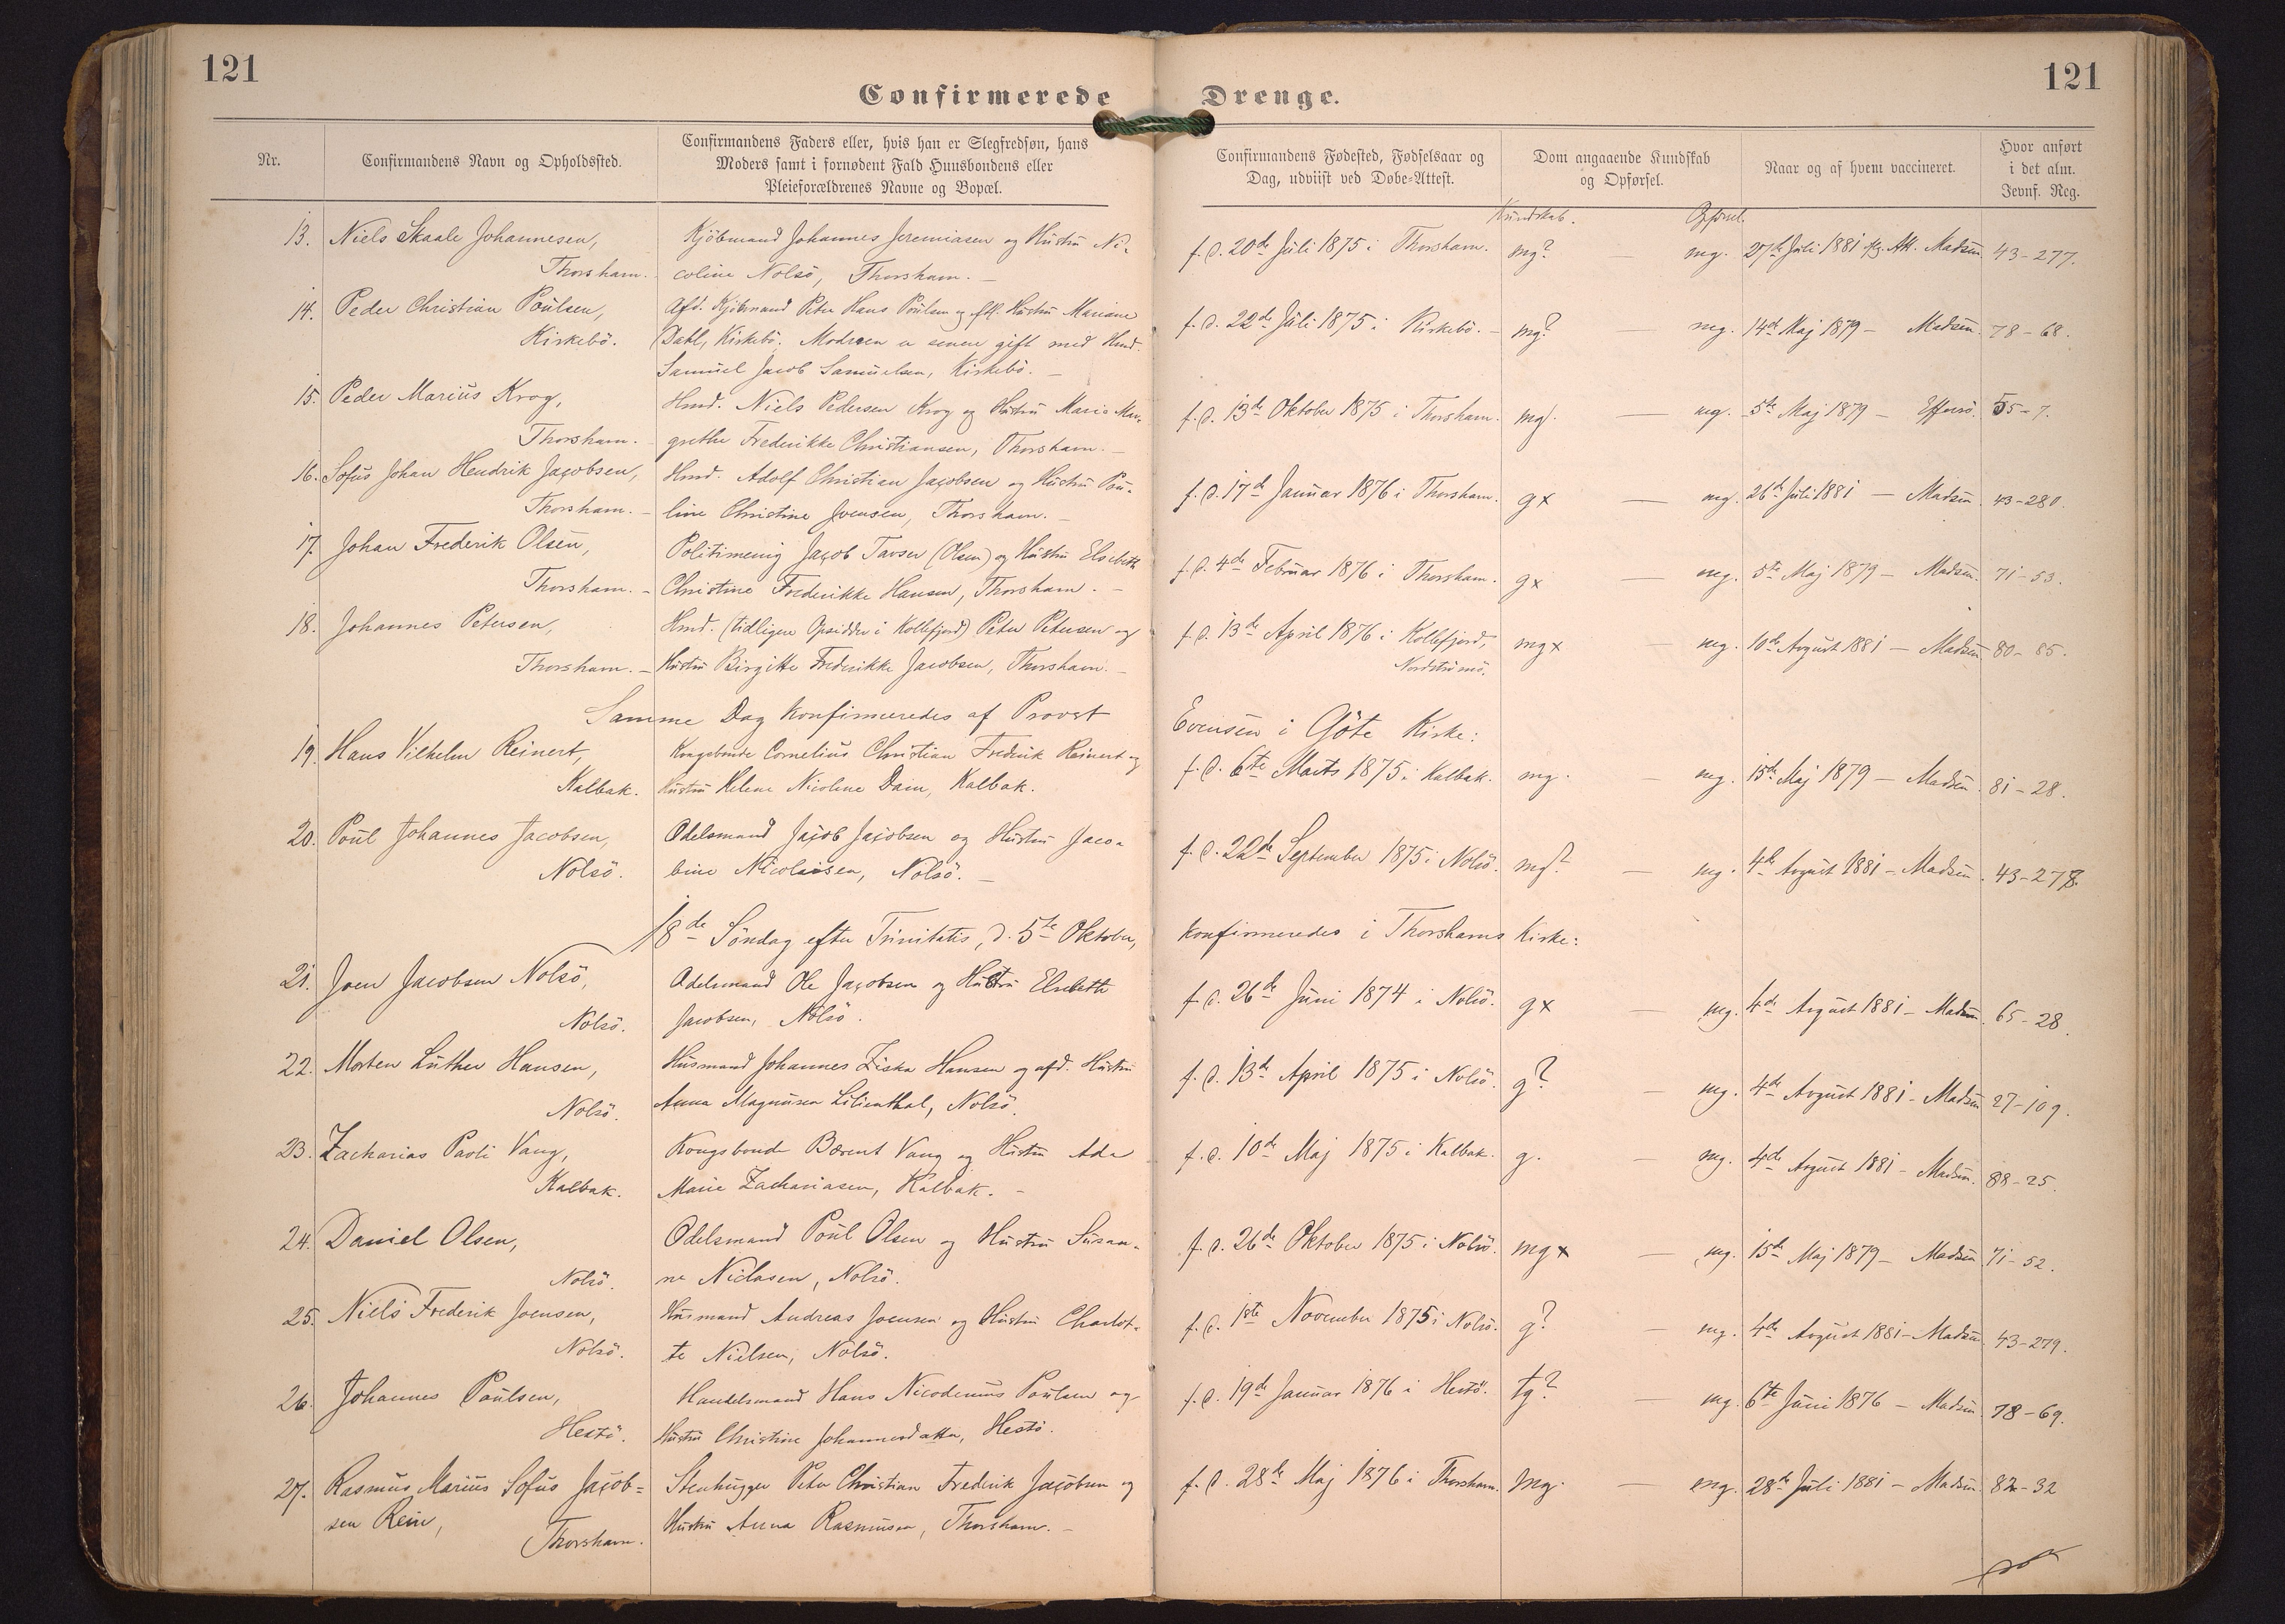 121
121
Confirmerede Drenge.
Nr.
Confirmandens Navn og Opholdssted.
Confirmandens Faders eller, hvis han er Slegfredsøn, hans
Moders samt i fornødent Fald Huusbondens eller
Pleieforældrenes Navne og Bopæl.
Confirmandens Fødested, Fødselsaar og
Dag, udviist ved Døbe-Attest.
Dom angaaende Kundskab
og Opførsel.
Naar og af hvem vaccineret.
Hvor anført
i det alm.
Jevnf. Reg.
Kundskab. Opførsel.
13. Niels Skaale Johannesen, Kjöbmand Johannes Jeremiasen og Hustru Ni- f. d. 20de Juli 1875 i Thorshavn. mg? — mg. 27de Juli 1881 Att. Madsen 43-277.
Thorshavn. coline Nolsö, Thorshavn. —
14. Peder Christian Poulsen, Afd. Kjöbmand Peter Hans Poulsen og Hustru Mariane f. d. 22de Juli 1875 i Kirkebö. — mg? — mg. 14de Maj 1879 — Madsen. 78-68.
Kirkebö. Dahl, Kirkebö. Moderen er senere gift med Hmd.
Samuel Jacob Samuelsen, Kirkebö. —
15. Peder Marius Krog, Hmd. Niels Pedersen Krog og Hustru Marie Mar- f. d. 13de Oktober 1875 i Thorshavn. mg. — mg. 5te Maj 1879 — Effersö. 55-7.
Thorshavn. — grethe Frederikke Christiansen, Thorshavn. —
16. Sofus Johan Hendrik Jacobsen, Hmd. Adolf Christian Jacobsen og Hustru Pou- f. d. 17de Januar 1876 i Thorshavn. gx — mg. 26de Juli 1881 — Madsen. 43-280.
Thorshavn. — line Christine Joensen, Thorshavn. —
17. Johan Frederik Olsen, Politimenig Jacob Tavsen (Olsen) og Hustru Elsebeth f. d. 4de Februar 1876 i Thorshavn. gx — mg. 5te Maj 1879 — Madsen. 71-53.
Thorshavn. — Christine Frederikke Hansen, Thorshavn. —
18. Johannes Petersen, Hmd. (tidligere Opsidder i Kollefjord) Peter Petersen og f. d. 13de April 1876 i Kollefjord, mgx — mg. 10de August 1881 — Madsen 80-85.
Thorshavn. — Hustru Birgitte Frederikke Jacobsen, Thorshavn. — Nordströmö.
Samme Dag konfirmeredes af Provst Evensen i Göte Kirke:
19. Hans Vilhelm Reinert, Kongsbonde Cornelius Christian Frederik Reinert og f. d. 6te Marts 1875 i Kalbak. mg. — mg. 15de Maj 1879 — Madsen. 81-28.
Kalbak. Hustru Helene Nicoline Dam, Kalbak.
20. Poul Johannes Jacobsen, Odelsmand Jacob Jacobsen og Hustru Jaco- f. d. 22de September 1875 i Nolsö. mg? — mg. 4de August 1881 — Madsen. 43-278.
Nolsö. bine Nicolaisen, Nolsö. —
18de Söndag efter Trinitatis, d. 5te Oktober, konfirmeredes i Thorshavns Kirke:
21. Joen Jacobsen Nolsö, Odelsmand Ole Jacobsen og Hustru Elsebeth f. d. 26de Juni 1874 i Nolsö. gx — mg. 4de August 1881 — Madsen. 65-28.
Nolsö. Jacobsen, Nolsö.
22. Morten Luther Hansen, Husmand Johannes Ziska Hansen og afd. Hustru f. d. 13de April 1875 i Nolsö. g? — mg. 4de August 1881 — Madsen 27-109.
Nolsö. Anna Magnusen Lilienthal, Nolsö.
23. Zacharias Paoli Vang, Kongsbonde Bærent Vang og Hustru Ada f. d. 10de Maj 1875 i Kalbak. g. — mg. 4de August 1881 — Madsen. 88-25.
Kalbak. Marie Zachariasen, Kalbak. —
24. Daniel Olsen, Odelsmand Poul Olsen og Hustru Susan- f. d. 26de Oktober 1875 i Nolsö. mgx — mg. 15de Maj 1879 — Madsen 71-52.
Nolsö. ne Niclasen, Nolsö.
25. Niels Frederik Joensen, Husmand Andreas Joensen og Hustru Charlot- f. d. 1ste November 1875 i Nolsö. g? — mg. 4de August 1881 — Madsen 43-279.
Nolsö. te Nielsen, Nolsö.
26. Johannes Poulsen, Handelsmand Hans Nicodemus Poulsen og f. d. 19de Januar 1876 i Hestö. tg? — mg. 6te Juni 1876 — Madsen. 78-69.
Hestö. Hustru Christine Johannesdatter, Hestö.
27. Rasmus Marius Sofus Jacob= Stenhugger Peter Christian Frederik Jacobsen og f. d. 28de Maj 1876 i Thorshavn. mg. — mg. 28de Juli 1881 — Madsen. 82-32
sen Rein, Hustru Anna Rasmusen, Thorshavn. —
Thorshavn.